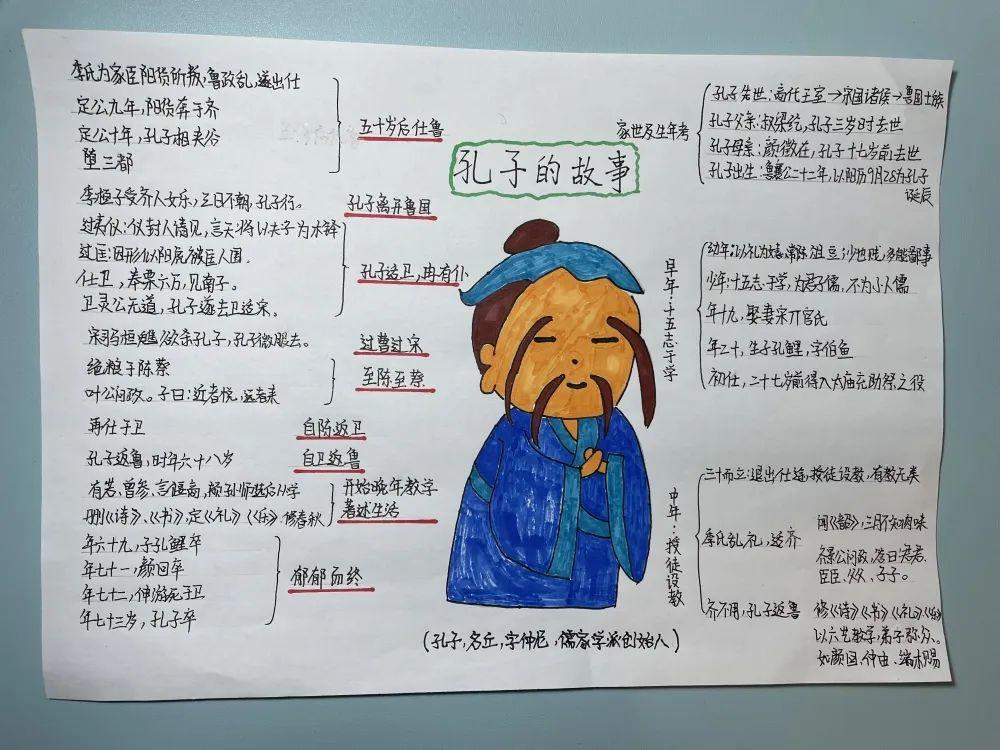 孔子的故事
家世及生年考
孔子先世:商代王室→宋国诸侯→鲁国士族
孔子父亲:叔梁纥,孔子三岁时去世
孔子母亲:颜徵在,孔子十七岁前去世
孔子出生:鲁襄公二十二年,以阳历9月28为孔子
诞辰
早年·十五志于学
幼年:以礼为嬉,常陈俎豆;少也贱,多能鄙事
少年:十五志于学,为君子儒,不为小人儒
年十九,娶妻宋亓官氏
年二十,生子孔鲤,字伯鱼
初仕,二十七岁前得入太庙充助祭之役
中年·授徒设教
三十而立:退出仕途,授徒设教,有教无类
季氏乱礼,适齐
闻《韶》,三月不知肉味
齐景公问政,答曰君君.
臣臣,父父,子子。
齐不用,孔子返鲁
修《诗》《书》《礼》《乐》
以六艺教学,弟子弥众、
如颜回、仲由、端木赐
五十岁后仕鲁
季氏为家臣阳货所叛,鲁政乱,遂出仕
定公九年,阳货奔于齐
定公十年,孔子相夹谷
堕三都
孔子离开鲁国
季桓子受齐人女乐,三日不朝,孔子行。
孔子适卫,冉有仆
过仪:仪封人请见,言天将以夫子为木铎
过匡:因形似阳虎被匡人围.
仕卫,奉粟六万,见南子。
卫灵公无道,孔子遂去卫适宋。
过曹过宋
宋司马桓魋欲杀孔子,孔子微服去。
至陈至蔡
绝粮于陈蔡
叶公问政。子曰:近者悦,远者来
自陈返卫
再仕于卫
自卫返鲁
孔子返鲁,时年六十八岁
开始晚年教学
著述生活
有若、曾参、言偃、颛孙师进后从学
删《诗》、《书》,定《礼》《乐》.修春秋
郁郁而终
年六十九,子孔鲤卒
年七十一,颜回卒
年七十二,仲由死于卫
年七十三岁,孔子卒
(孔子,名丘,字仲尼,儒家学派创始人)